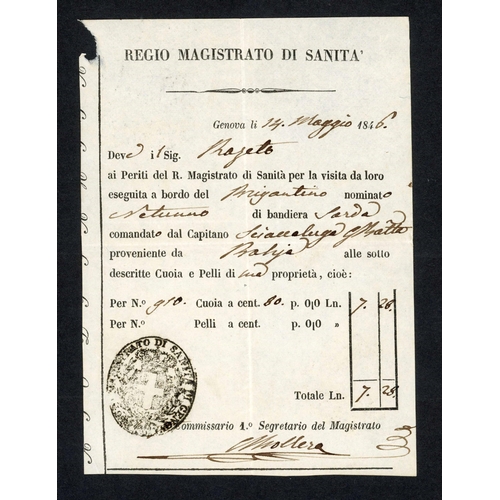 REGIO MAGISTRATO DI SANITA'
Genova li 14 Maggio 1846.
Deve il Sig. Rageto
ai Periti del R. Magistrato di Sanità per la visita da loro
eseguita a bordo del Brigantino nominato
Netunno di bandiera Sarda
comandato dal Capitano Sciaccaluga GBatta
proveniente da Bahja alle sotto
descritte Cuoia e Pelli di sua proprietà, cioè:
Per N.º 910. Cuoia a cent. 80. p. 0|0 Ln. 7. 28.
Per N.º Pelli a cent. p. 0|0 »
MAGISTRATO DI SANITA DI
Totale Ln. 7. 28.
Commissario 1.º Segretario del Magistrato
Mollera